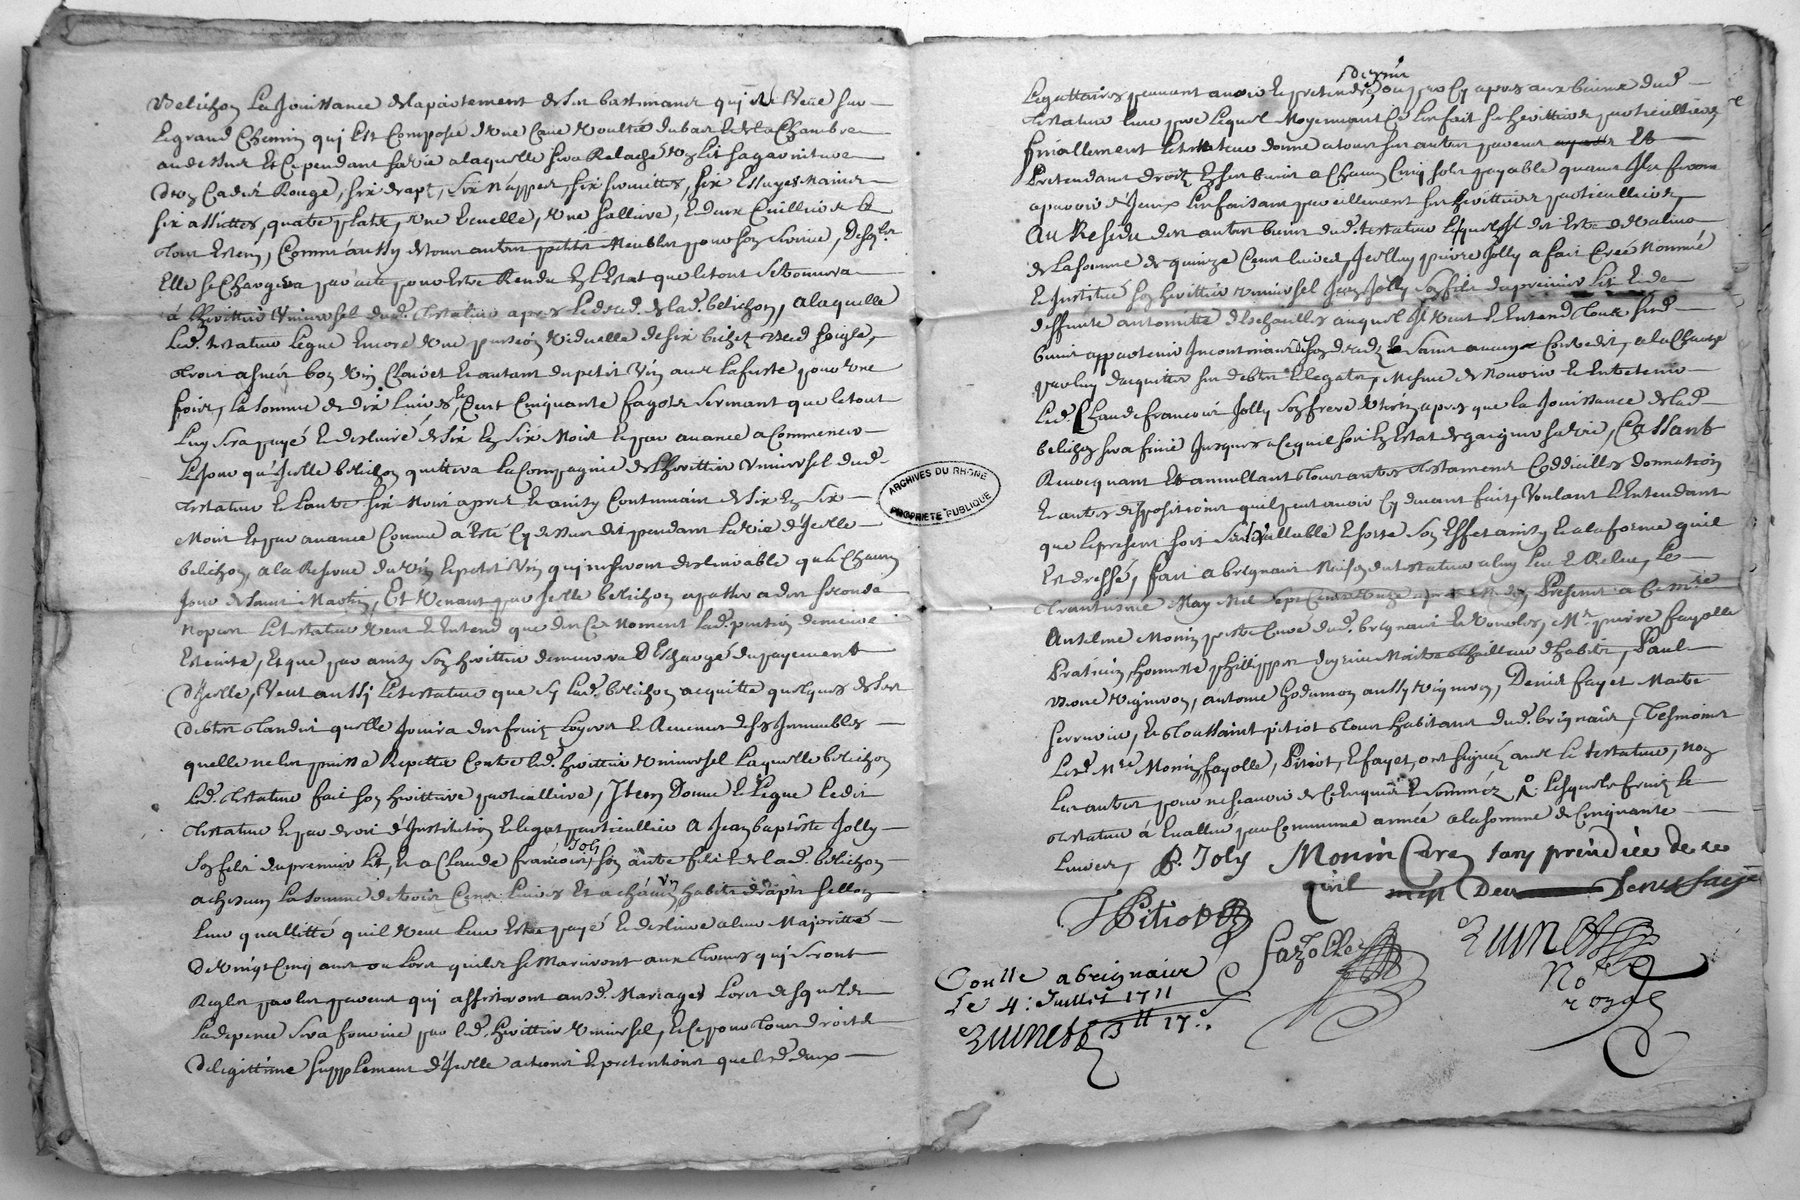 belichon la Jouissance de lapartement de son bastiment qui se treuve sur
le grand Chemin qui est Composé d'Une Cave Voultée du bas et de la Chambre
au dessus Et Ce pendant sa vie a laquelle sera Relaché Un lit sa garniture
de Cadis Rouge, six draps, six nappes, six serviettes, six Essuyes Mains
six assiettes, quatre plats, Une Ecuelle, Une salliere, et deux Cuillieres le
tout Estein, Comme aussy de tous autres petits Meubles pour son service, desquels
Elle se Chargera par acte pour Estre Rendu En l'Estat que le tout se trouvera
á l'heritier Universel dud. testateur apres le deced. de lad. belichon, a laquelle
led. testateur legue Encore Une pention viduelle de six bichets bled seigle,
trois asnées bon vin Clairet et autant du petit vin avec la fuste pour Une
fois, la somme de dix livres, et Cent Cinquante fagots serment que le tout
luy sera payé et deslivré de six En six Mois et par avance a Commencer
le jour qu'Jcelle belichon quittera la Compagnie de l'heritier Universel dud.
testateur et l'autre six Mois apres et ainsy Continuant de six En six
Mois Et par avance Comme a Esté Cy dessus dit pendant la vie d'Jcelle
belichon, a la Reserve du vin et petit vin qui ne seront deslivrable qu'a Chacun
jour de saint Martin, Et Venant par Jcelle belichon a passer a des secondes
nopces le testateur Veut et Entend que des Ce Moment lad. pention demeure
Esteinte, Et que par ainsy son heritier demeurera deschargé du payement
d'Jcelle, Veut aussi le testateur que sy lad. belichon acquitte quelques de ses
debtes tandis quelle Jouira des fruits loyers et Revenus de ses Jmmeubles
quelle ne les puisse Repetter Contre led. heritier Universel laquelle belichon
led. testateur fait son heritiere particulliere, Jtem Donne et legue ledit
testateur et par droit d'Jnstitution et legat particullier A Jean baptiste Jolly
son fils du premier lit, et a Claude francois Joly son autre fils et de lad. belichon
a chacun la somme de trois Cens livres Et a chacun Un habit de drapt sellon
leur quallitté quil veut leur Estre payé et deslivré a leur Majoritté
de vingt Cinq ans ou lors quils se Marieront aux termes qui seront
Reglés par les parents qui assisteront aud. Mariages lors desquels
la depence sera fournie par led. heritier Universel, et ce pour tous droits
de legittime supplement d'Jcelle actions et pretentions que lesd. deux
legattaires peuvent avoir et pretendre, ou par Cy apres aux biens dud.
testateur leur pere lequel Moyennant Ce les fait ses heritiers particulliers
finallement le testateur donne a tous ses autres parents
pretendant droit En ses biens a Chacun Cinq sols payable quand Jls feront
apparoir d'Jceux les faisant pareillement ses heritiers particulliers,
Au Residu des autres biens dud. testateur lequel a dit Estre de valleur
de la somme de quinze Cens livres, Jcelluy pierre Jolly a fait Créé Nommé
et Jnstitué son heritier Universel Jean Jolly son fils du premier lit et de
deffunte antoinette deschailles auquel Jl Veut et Entend tous sesd.
biens appartenir Jncontinant son deced et sans aucun Contredit, a la Charge
par luy d'acquitter ses debtes et legats, Mesme de Nourrir et Entretenir
led. Claude francois Jolly son frere apres que la Jouissance de lad.
belichon sera finie Jusques a Ce quil soit En Estat de gaigner sa vie, Cassant
Revocquant Et annullant tous autres testaments Coddicilles donnation
et autres dispositions quil peut avoir Cy devant fait, Voulant et Entendant
que le present soit seul vallable Et sorte son Effet ainsy, et a la forme quil
Est dressé, fait a brignais Maison du testateur a luy leu et Releu, le
trantiesme May Mil sept Cens Unze Present a Ce Mre
Antoine Monin prestre Curé dud. brignais et Vourles, Mr pierre fayolle
praticien, honneste phillippes Maitre tailleur d'habits, Paul
vigneron, antoine aussy vigneron, Denis fayet Maitre
serrurier, et toussaint pitiot tous habitans dud. brignais, tesmoins
lesd. Mre Monin, fayolle, Pitiot, et fayet, ont signéz avec le testateur, non
les autres pour ne scavoir de Ce Enquis et sommez, lesquels fruits le
testateur á Evallué par Commune année a la somme de Cinquante
livres, P. Joly Monin Curé
Denis faye
TPitiot
fayolle
Zuinet
No
Royal
Contlle a brignais
Le 4: Juillet 1711
Zuinet
ARCHIVES DU RHÔNE
PROPRIÉTÉ PUBLIQUE